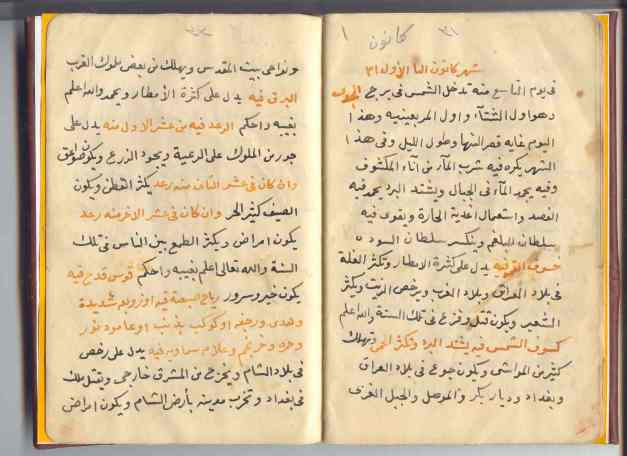 ٣١ كانون ١
شهر كانون الأول ٣١
في يوم التاسع منه تدخل الشمس في برج الجدي
وهو اول الشتآء واول المربعينيه وهذا
اليوم غايه قصر النهار وطول الليل وفي هذا
الشهر يكره فيه شرب المآء من انآء المكشوف
وفيه يجمد المآء في الجبال ويشتد البرد يحمد فيه
الفصد واستعمال اغذية الحارة ويقوى فيه
سلطان البلغم وينكسر سلطان السوده
خسوف القمر فيه يدل على كثرة الامطار وتكثر الغلة
في بلاد العراق وبلاد الغرب ويرخص الزيت ويكثر
الشعير ويكون قتل وفزع في تلك السنة والله اعلم
كسوف الشمس فيه يشتد البرد وتكثر الحمى ويهلك
كثير من المواشي ويكون جوع في بلاد العراق
وبغداد وديار بكر والموصل والجبل الغربى
ونواحي بيت المقدس ويهلك من بعض ملوك الغرب
البرق فيه يدل على كثرة الامطار ويحمد والله اعلم
بغيبه واحكم الرعد فيه من عشر الاول منه يدل على
جور من الملوك على الرعية ويجود الزرع ويكون
وان كان في عشر الثاني منه رعد يكثر القطن ويكون
الصيف كثير الحر وان كان في عشر الاخر منه رعد
يكون امراض ويكثر الطمع بين الناس في تلك
السنة والله تعالى اعلم بغيبه واحكم قوس قدح فيه
يكون خير وسرور رياح السبعة فيه او زلزله شديدة
وهدى ورجفه او كوكب بذنب او عامود نور
وحره وعلام سماويه فيه يدل على رخص
في بلاد الشام ويخرج من المشرق خارجي ويقتل ملك
في بغداد وتخرب مدينه بأرض الشام ويكون امراض